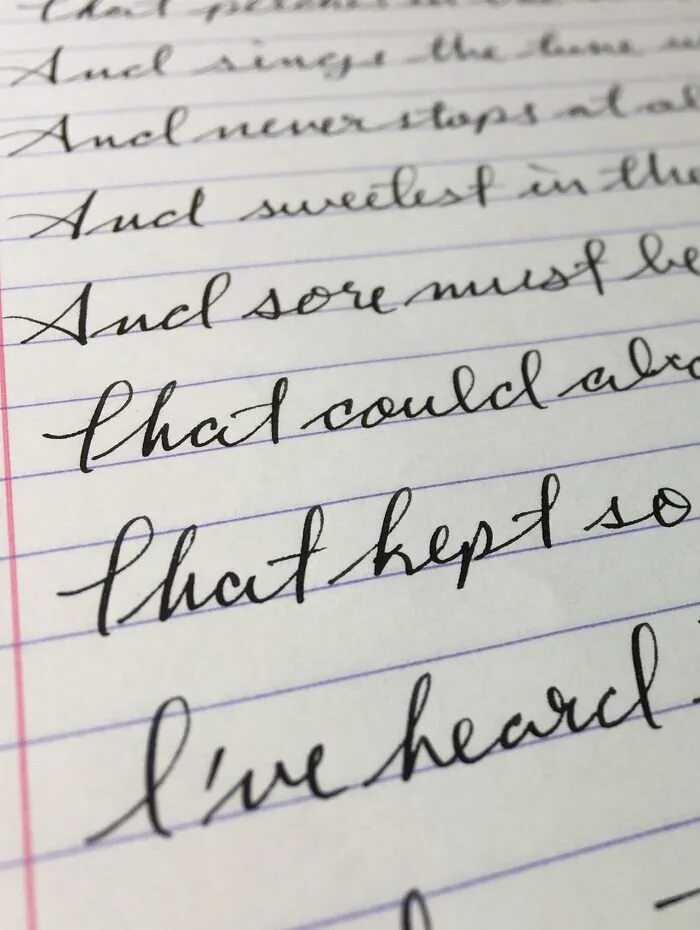 That perches in the
And sings the tune w
And never stops at al
And sweetest in the
And sore must be
That could aba
That kept so
I've heard i